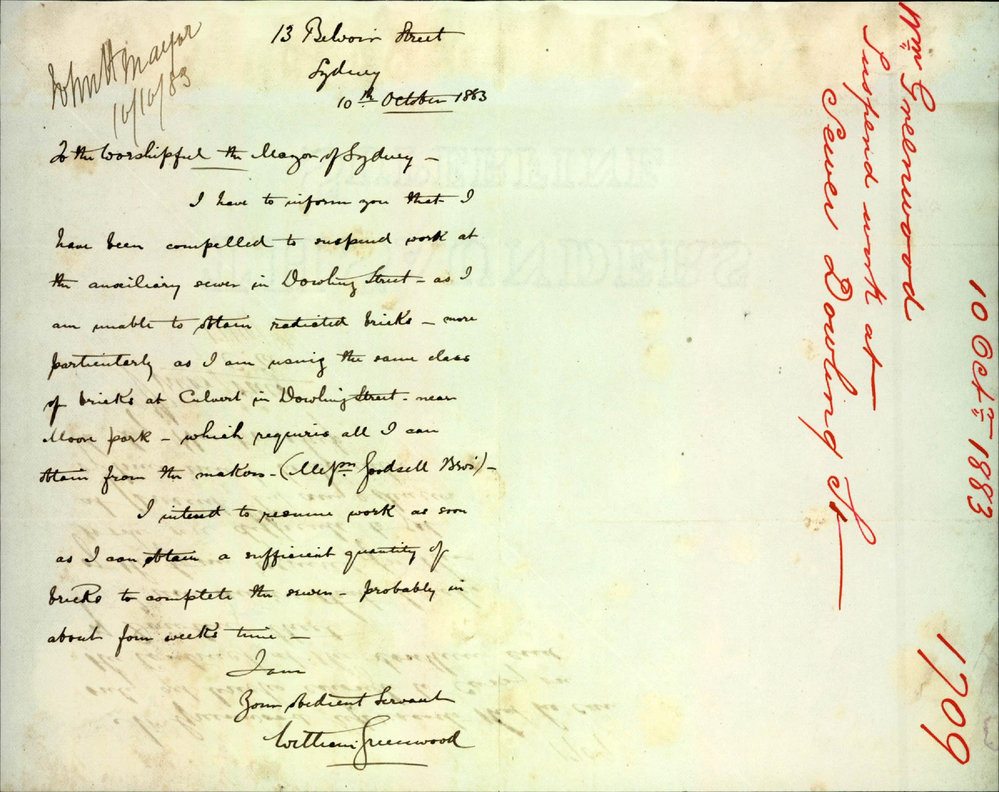 John H Mayor
10/10/83
13 Belvoir Street
Sydney
10th October 1883
To the Worshipful the Mayor of Sydney –
I have to inform you that I
have been compelled to suspend work at
the auxiliary sewer in Dowling Street – as I
am unable to obtain radiated bricks – more
particularly as I am using the same class
of bricks at Culvert in Dowling Street – near
Moore park – which requires all I can
obtain from the makers – (Messrs Goodsell Bros) –
I intend to resume work as soon
as I can obtain a sufficient quantity of
bricks to complete the sewer – probably in
about four weeks time –
I am
Your obedient Servant
William Greenwood
Wm Greenwood
Suspend work at
Sewer Dowling St
10 Octr 1883
1709